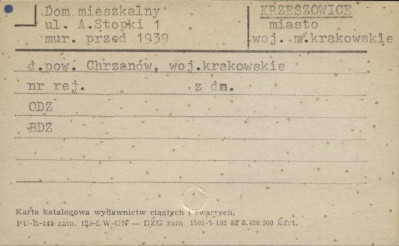 Dom mieszkalny
ul. A.Stopki 1
mur. przed 1939
KRZESZOWICE
miasto
woj. m.krakowskie
d.pow. Chrzanów, woj.krakowskie
nr rej. z dn.
ODZ
BDZ
Karta katalogowa wydawnictw ciągłych i zwartych.
PU-B-144 zam. LW-ON — DZG zam.